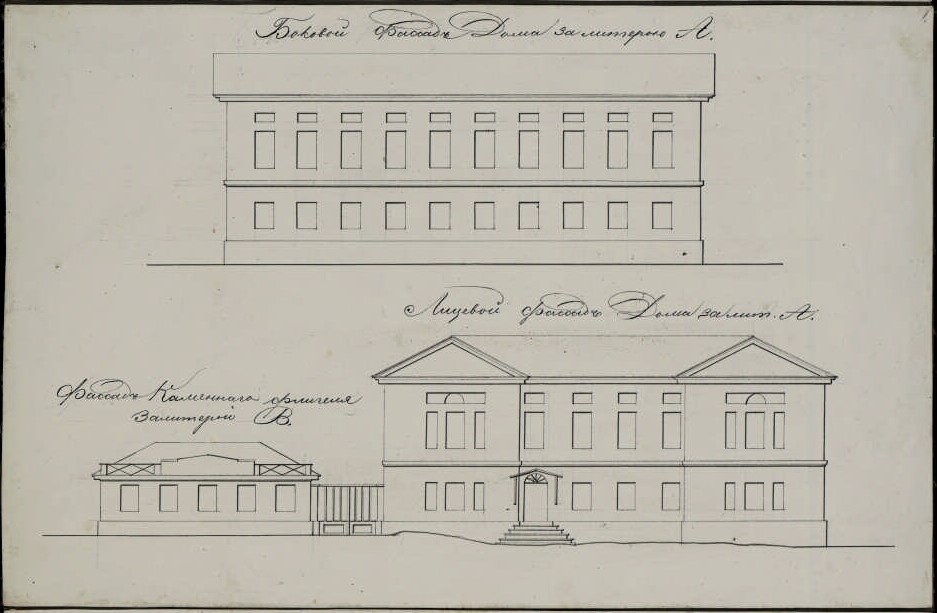 Боковой фассадъ Дома за литерою А.
Лицевой фассадъ Дома за лит. А.
Фассадъ Каменнаго флигеля
За литерой В.